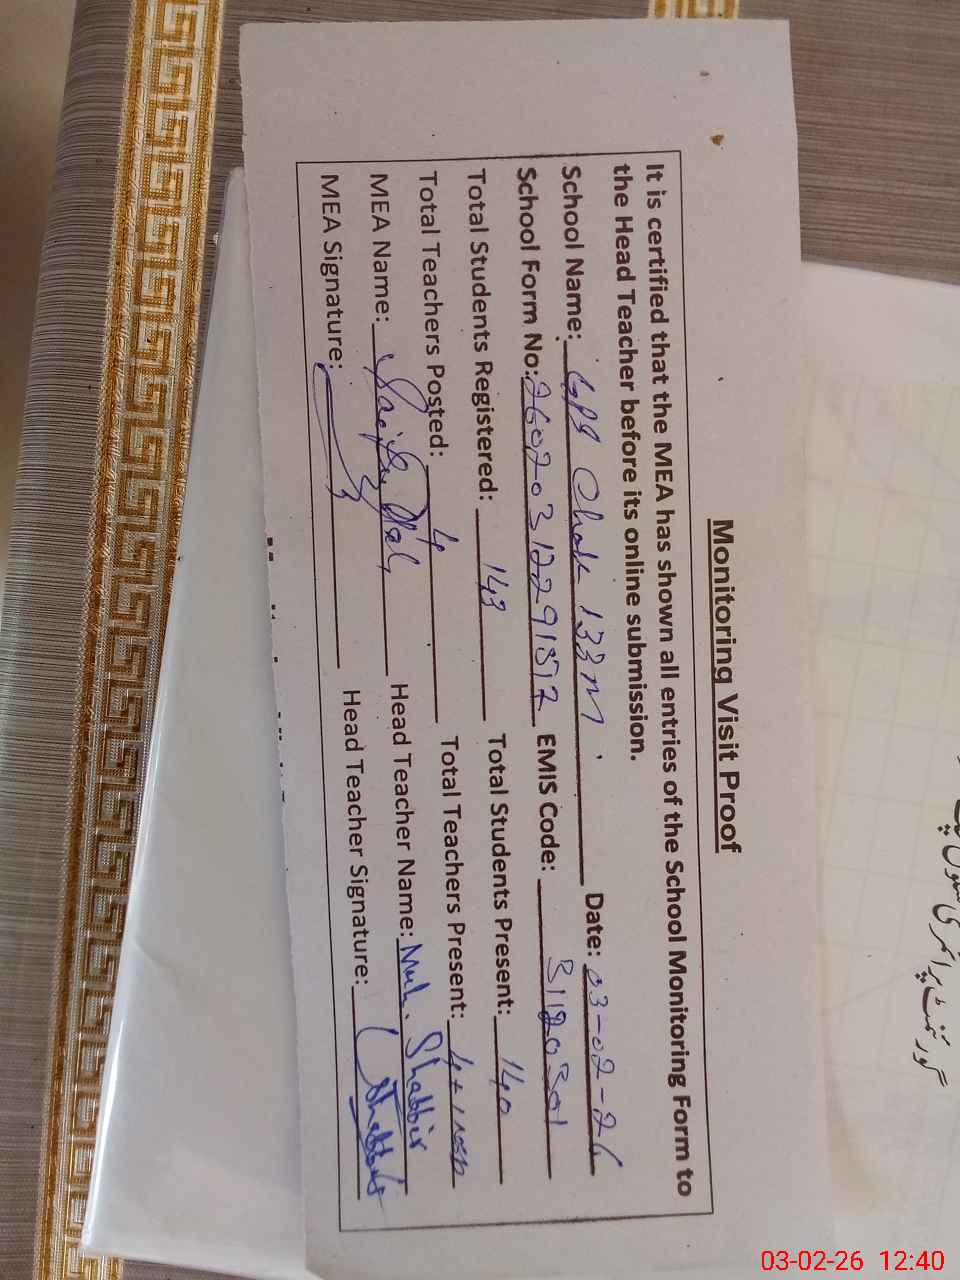 Monitoring Visit Proof
It is certified that the MEA has shown all entries of the School Monitoring Form to
the Head Teacher before its online submission.
School Name: GPS Chak 133M. Date: 03-02-26
School Form No: 26020312291872 EMIS Code: 31120301
Total Students Registered: 143 Total Students Present: 140
Total Teachers Posted: 4 Total Teachers Present: 4+
MEA Name: Head Teacher Name: Muh. Shabbir
MEA Signature: Head Teacher Signature: Shabbir
گورنمنٹ پرائمری سکول
03-02-26 12:40